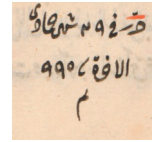 في شهر جمادى
الاخرة ٩٩٥
م